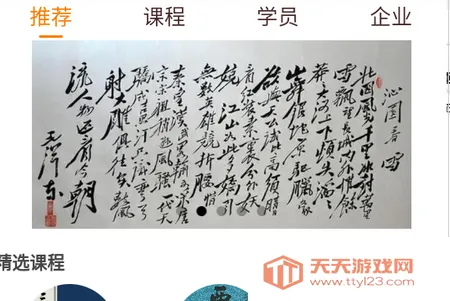 推荐 课程 学员 企业
沁园春 雪
北国风光千里冰封万里
雪飘望长城内外惟馀
莽莽大河上下顿失滔滔
山舞银蛇原驰腊象
欲与天公试比高须晴
红装素裹分外妖
娆江山如此多娇引
无数英雄竞折腰惜
秦皇汉武略输文采唐
宗宋祖稍逊风骚一代天
骄成吉思汗只识弯弓
射大雕俱往矣数风
流人物还看今朝
毛泽东
精选课程
天天游戏网
www.ttyl23.com